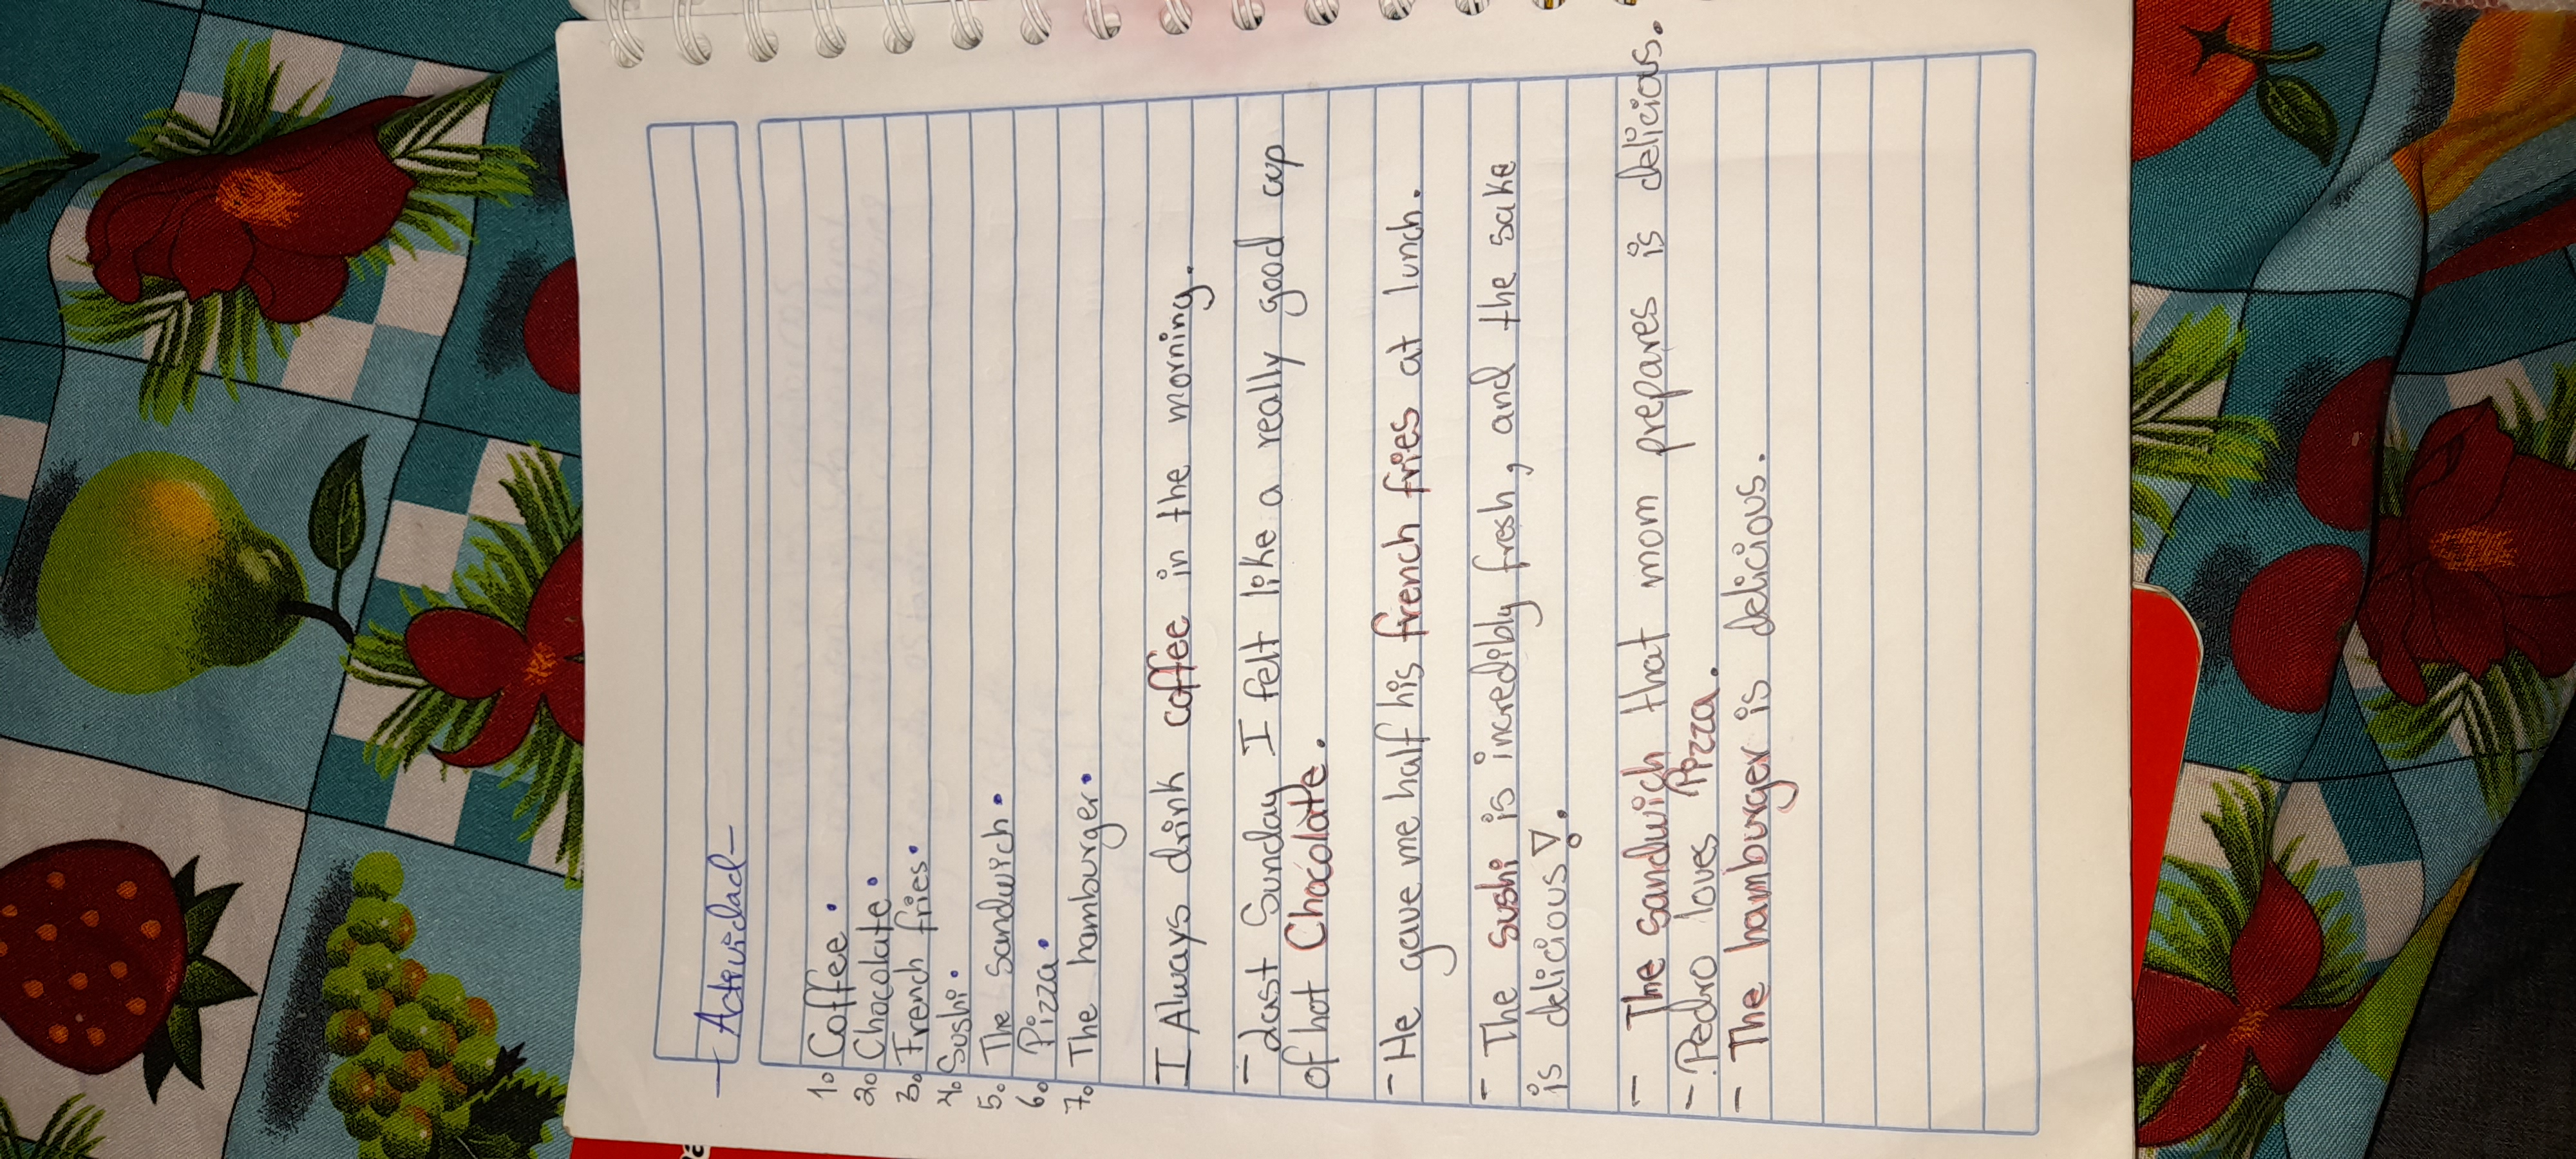 - Actividad -
1. Coffee.
2. Chocolate.
3. French fries.
4. Sushi.
5. The sandwich.
6. Pizza.
7. The hamburger.
I Always drink coffee in the morning.
- Last Sunday I felt like a really good cup
of hot Chocolate.
- He gave me half his french fries at lunch.
- The sushi is incredibly fresh, and the sake
is delicious.
- The sandwich that mom prepares is delicious.
- Pedro loves Pizza.
- The hamburger is delicious.